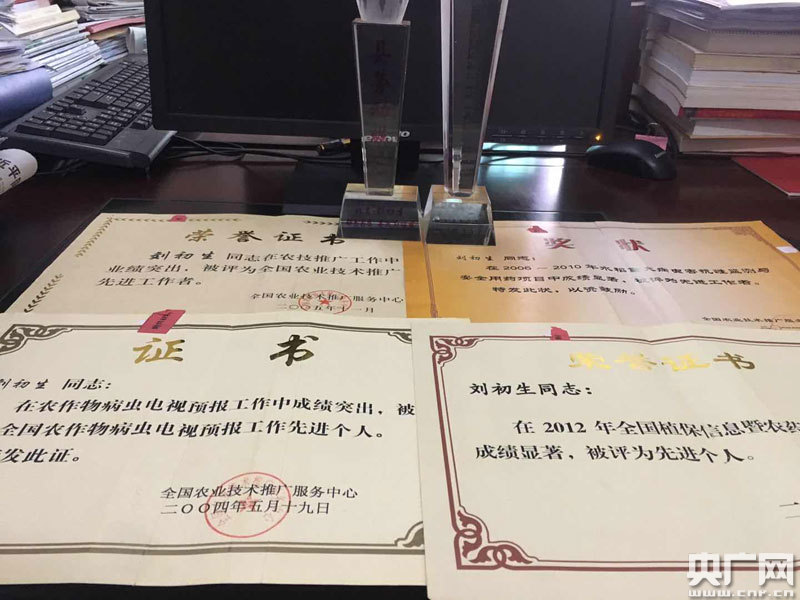 荣誉证书
刘初生 同志在农技推广工作中
业绩突出，被评为全国农业技术推广
先进工作者。
全国农业技术推广服务中心
二〇〇五年十一月
奖 状
刘初生 同志：
在2006～2010年水稻重大病虫害抗性监测及
安全用药项目中成绩显著，被评为先进工作者。
特发此状，以资鼓励。
全国农业技术推广服务
证 书
刘初生 同志：
在农作物病虫电视预报工作中成绩突出，被
全国农作物病虫电视预报工作先进个人。
发此证。
全国农业技术推广服务中心
二〇〇四年五月十九日
荣誉证书
刘初生同志：
在 2012 年全国植保信息暨农药
成绩显著，被评为先进个人。
lenovo
央广网
www.cnr.cn